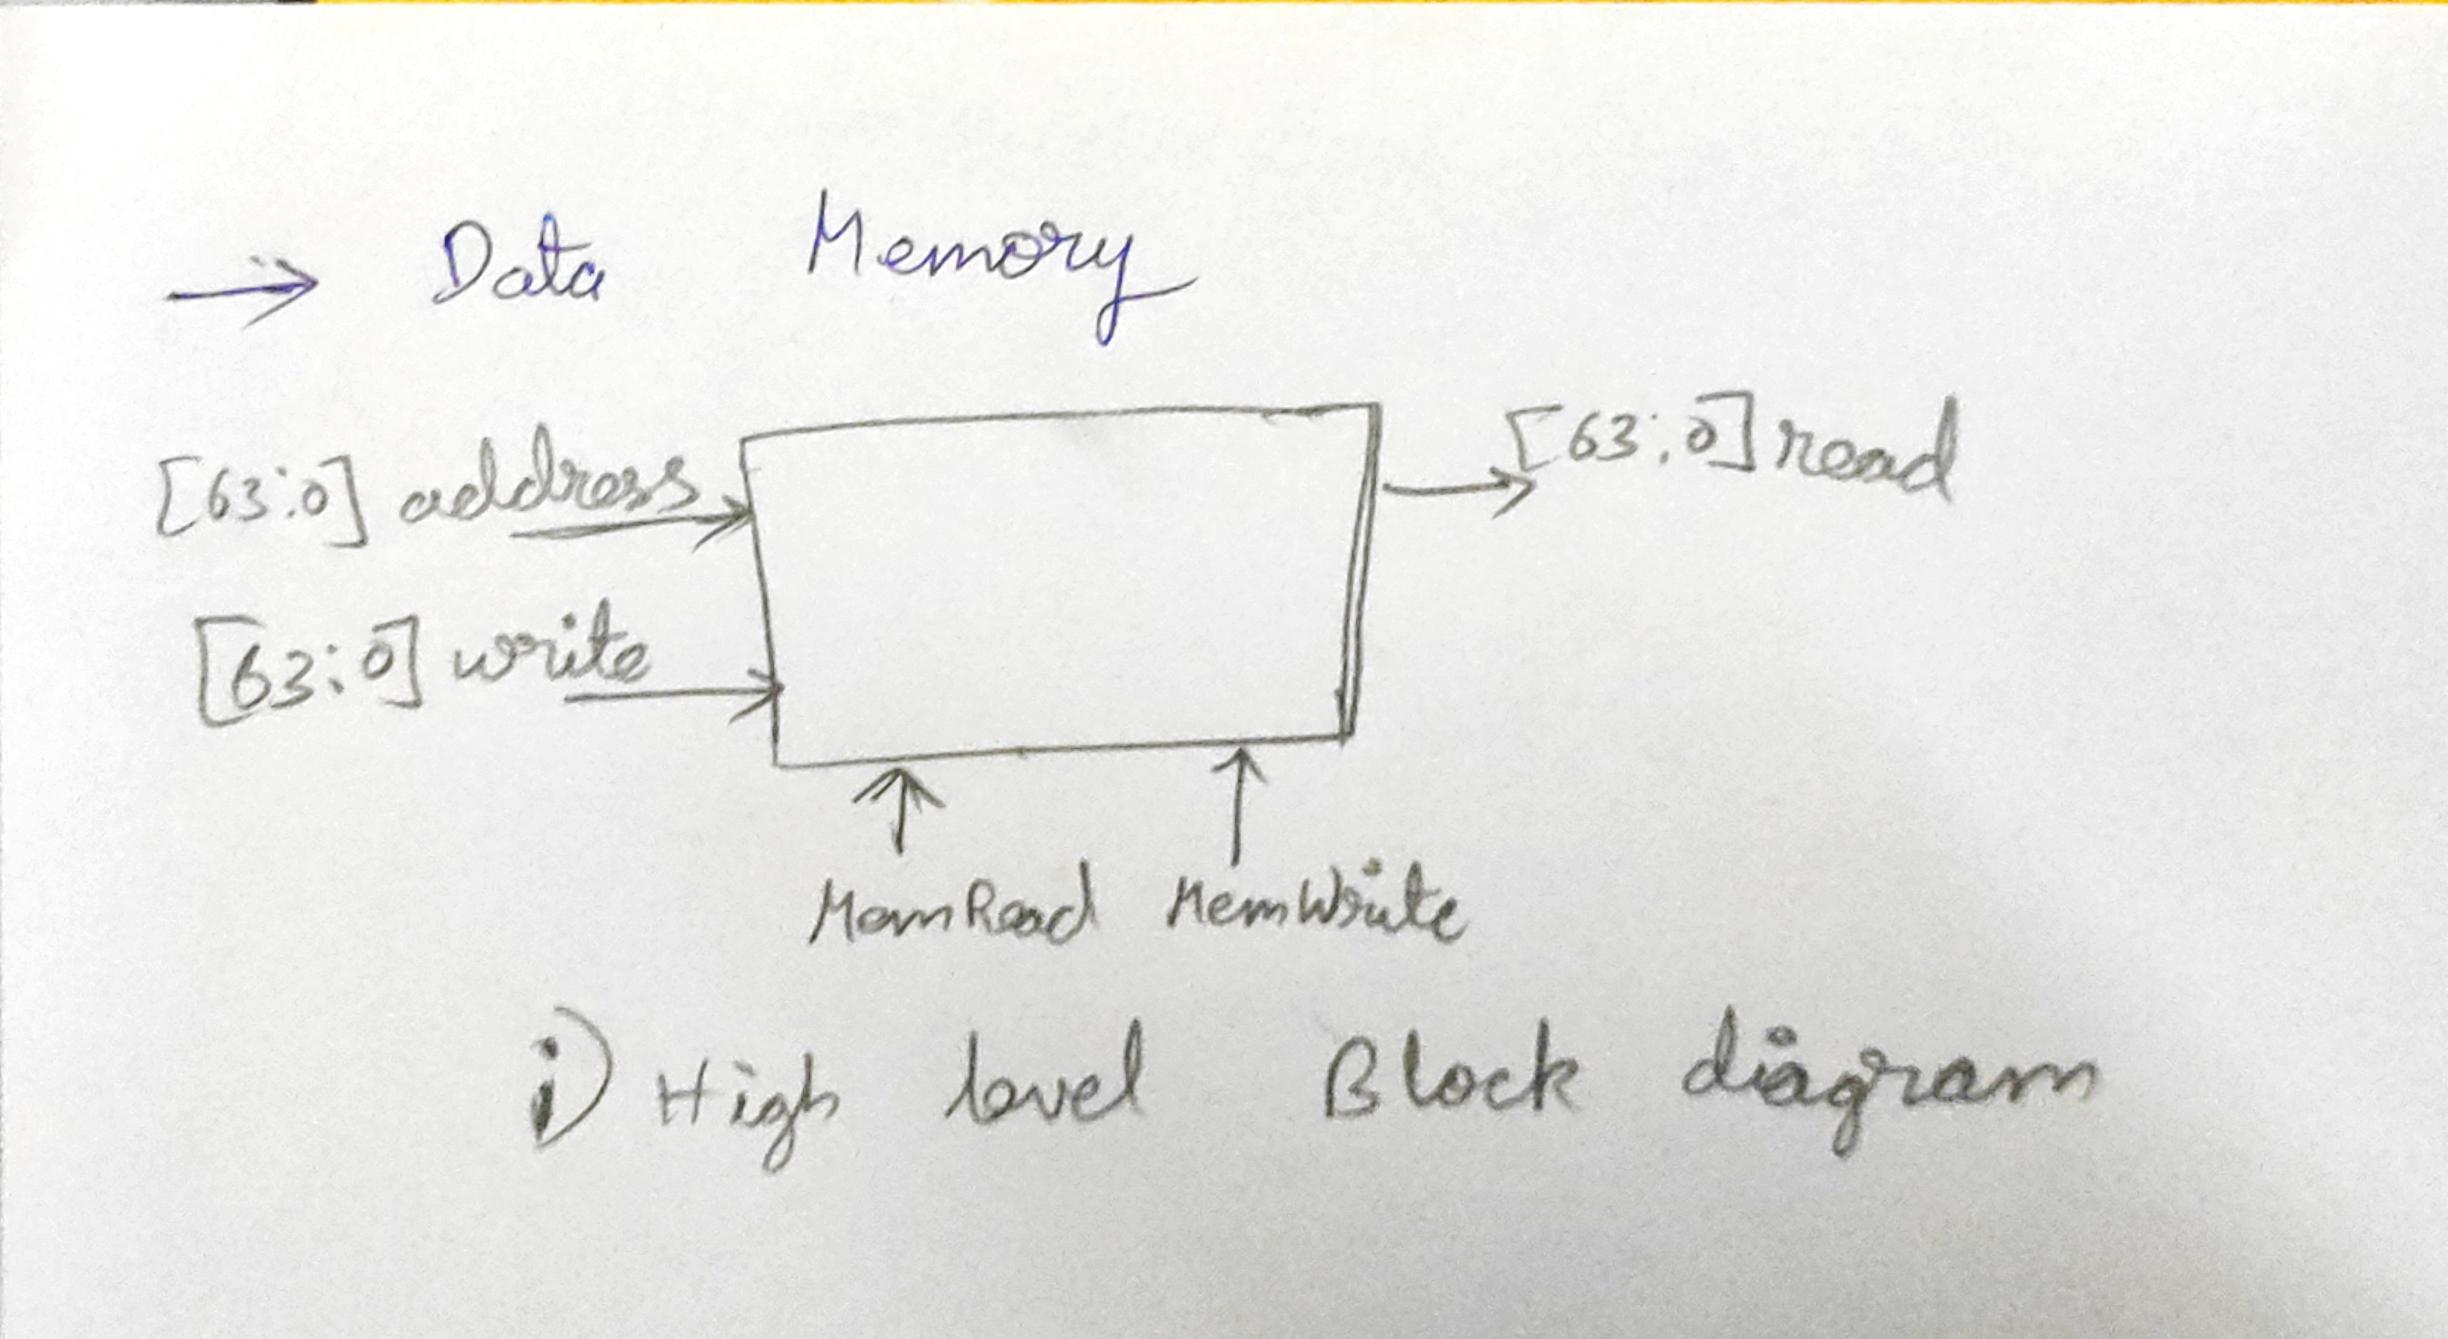 → Data Memory
[63:0] address
[63:0] read
[63:0] write
MemRead MemWrite
i) High level Block diagram